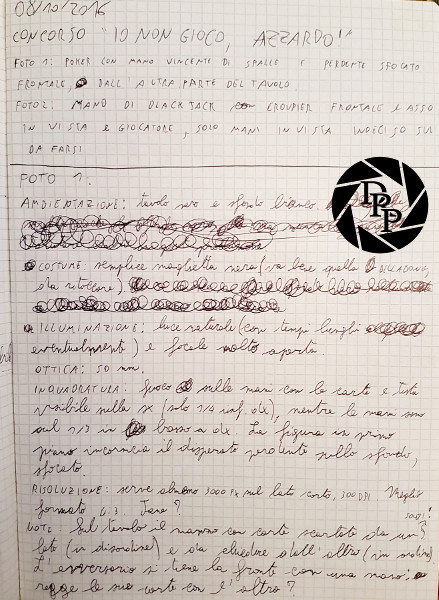 08/10/2016
CONCORSO "IO NON GIOCO, AZZARDO!"
FOTO 1: POKER CON MANO VINCENTE DI SPALLE E PERDENTE SFOCATO
FRONTALE, DALL'ALTRA PARTE DEL TAVOLO.
FOTO 2: MANO DI BLACKJACK CON CROUPIER FRONTALE E ASSO
IN VISTA E GIOCATORE, SOLO MANI IN VISTA INDECISO SUL
DA FARSI
FOTO 1:
AMBIENTAZIONE: tavolo nero e sfondo bianco.
TPP
COSTUME: semplice maglietta nera (va bene quella BILLABONG,
da ritoccare)
ILLUMINAZIONE: luce naturale (con tempi lunghi
eventualmente) e focale molto aperta.
OTTICA: 50 mm.
INQUADRATURA: fuoco sulle mani con le carte e testa
visibile sulla sx (solo 1/4 inf. dx), mentre le mani sono
sul 1/3 in basso a dx. La figura in primo
piano incornicia il disperato perdente sullo sfondo,
sfocato.
RISOLUZIONE: serve almeno 3000 px sul lato corto, 300 DPI Meglio
formato 4:3. Jane?
NOTE: Sul tavolo il mazzo con carte scartate da un
lato (in disordine) e da chiedere dall'altro (in ordine)
L'avversario si tiene la fronte con una mano: e
regge le sue carte con l'altra?